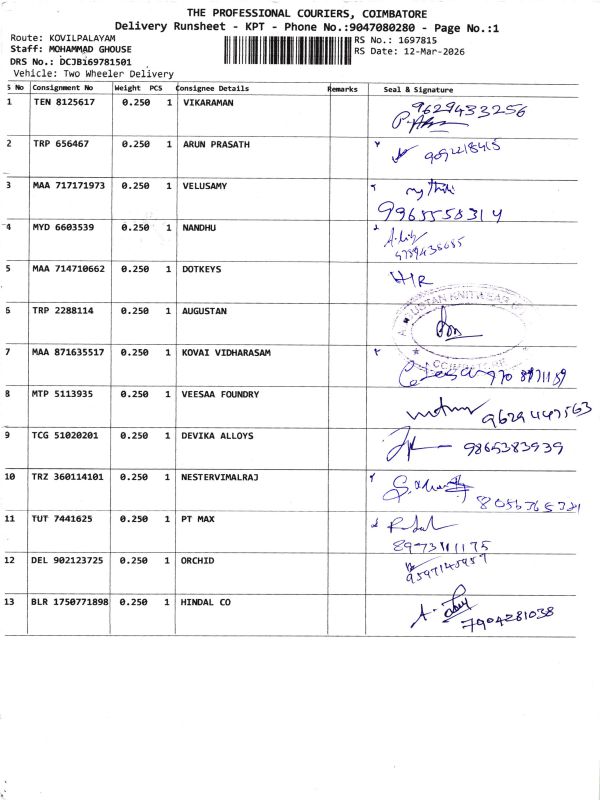 THE PROFESSIONAL COURIERS, COIMBATORE
Delivery Runsheet - KPT - Phone No.:9047080280 - Page No.:1
Route: KOVILPALAYAM
RS No.: 1697815
Staff: MOHAMMAD GHOUSE
RS Date: 12-Mar-2026
DRS No.: DCJB169781501
Vehicle: Two Wheeler Delivery
S No Consignment No Weight PCS Consignee Details Remarks Seal & Signature
1 TEN 8125617 0.250 1 VIKARAMAN 9629433256
2 TRP 656467 0.250 1 ARUN PRASATH
3 MAA 717171973 0.250 1 VELUSAMY
9965558314
4 MYD 6603539 0.250 1 NANDHU
4789438685
5 MAA 714710662 0.250 1 DOTKEYS H/R
6 TRP 2288114 0.250 1 AUGUSTAN
7 MAA 871635517 0.250 1 KOVAI VIDHARASAM
8 MTP 5113935 0.250 1 VEESAA FOUNDRY 9629447563
9 TCG 51020201 0.250 1 DEVIKA ALLOYS 9865383939
10 TRZ 360114101 0.250 1 NESTERVIMALRAJ
8056765321
11 TUT 7441625 0.250 1 PT MAX
8973111175
12 DEL 902123725 0.250 1 ORCHID
9597145957
13 BLR 1750771898 0.250 1 HINDAL CO
7904281038